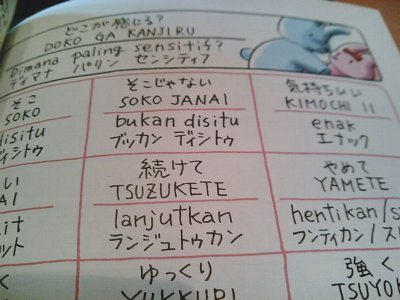 どこが感じる?
DOKO GA KANJIRU
Dimana paling sensitif?
ディマナ パリン センシティフ
そこ
SOKO
disitu
ディシトゥ
そこじゃない
SOKO JANAI
bukan disitu
ブッカン ディシトゥ
気持ちいい
KIMOCHI II
enak
エナック
続けて
TSUZUKETE
lanjutkan
ランジュトゥカン
やめて
YAMETE
hentikan/s
フンティカン/ス
ゆっくり
YUKKURI
強く
TSUYOK